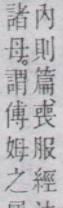 內則篇喪服經
諸母。謂傅姆之